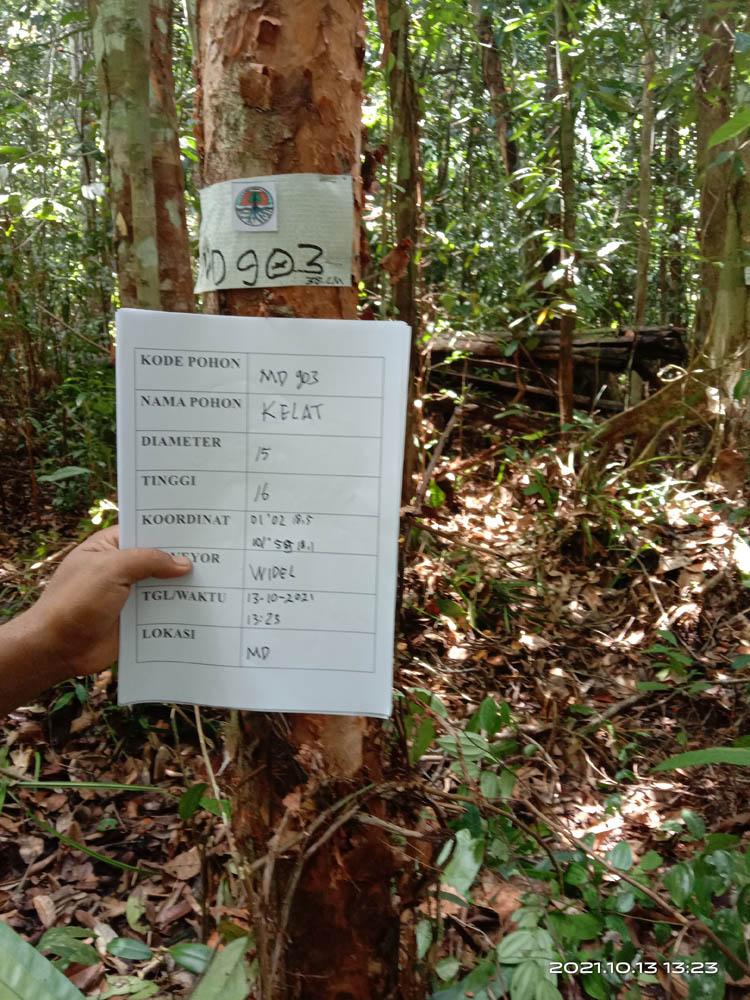 MD 903
38 CM
KODE POHON MD 903
NAMA POHON KELAT
DIAMETER 15
TINGGI 16
KOORDINAT 01°02 18.5
18.1
EYOR WIDEL
TGL/WAKTU 13-10-2021
13:23
LOKASI MD
2021.10.13 13:23